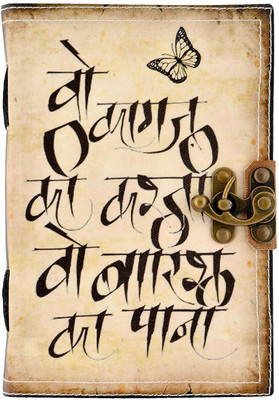 वो
कागज़
की कश्ती
वो बारिश
का पानी